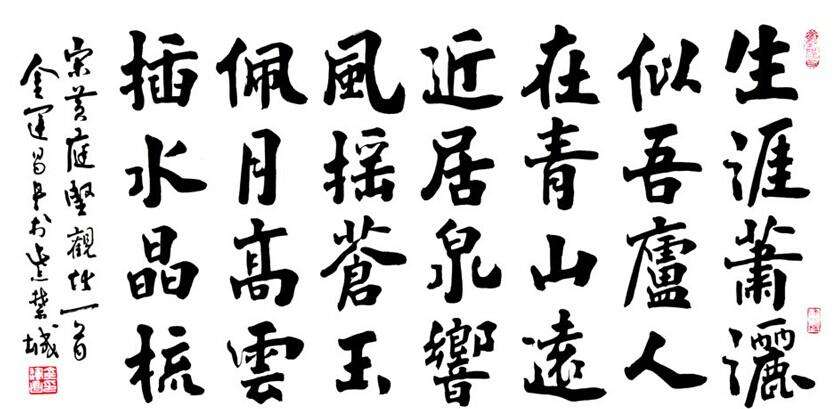 生涯蕭灑
似吾廬人
在青山遠
近居泉響
風搖蒼玉
佩月高雲
插水晶梳
宋黃庭堅觀化一首
金運昌書於紫禁城